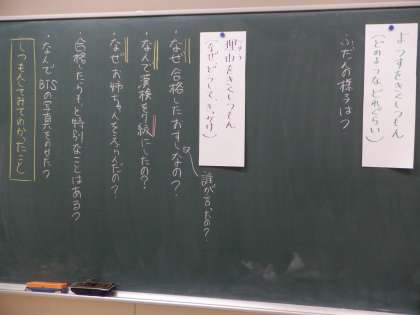 ようすをきくしつもん
(どのような、どれぐらい)
ふだんの様子は?
理由をきくしつもん
(なぜ、どうして、きっかけ)
・なぜ合格したおすしなの?
誰が言ったの?
・なんで漢検をり級にしたの?
・なぜお姉ちゃんをえらんだの?
・合格したらもと特別なことはある?
・なんでBTSの写真をのせた?
しつもんしてみてわかったこと